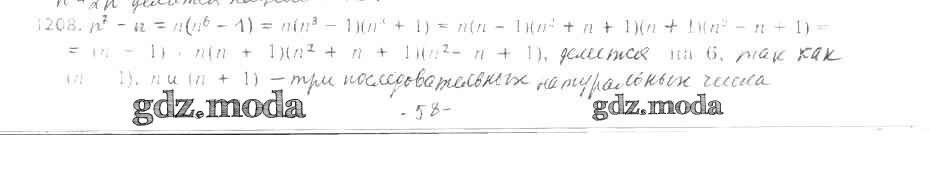 1208. n⁷ - n = n(n⁶ - 1) = n(n³ - 1)(n³ + 1) = n(n - 1)(n² + n + 1)(n + 1)(n² - n + 1) =
= (n - 1) · n(n + 1)(n² + n + 1)(n² - n + 1), делится на 6, так как
(n - 1), n и (n + 1) - три последовательных натуральных числа
gdz.moda gdz.moda
- 58 -